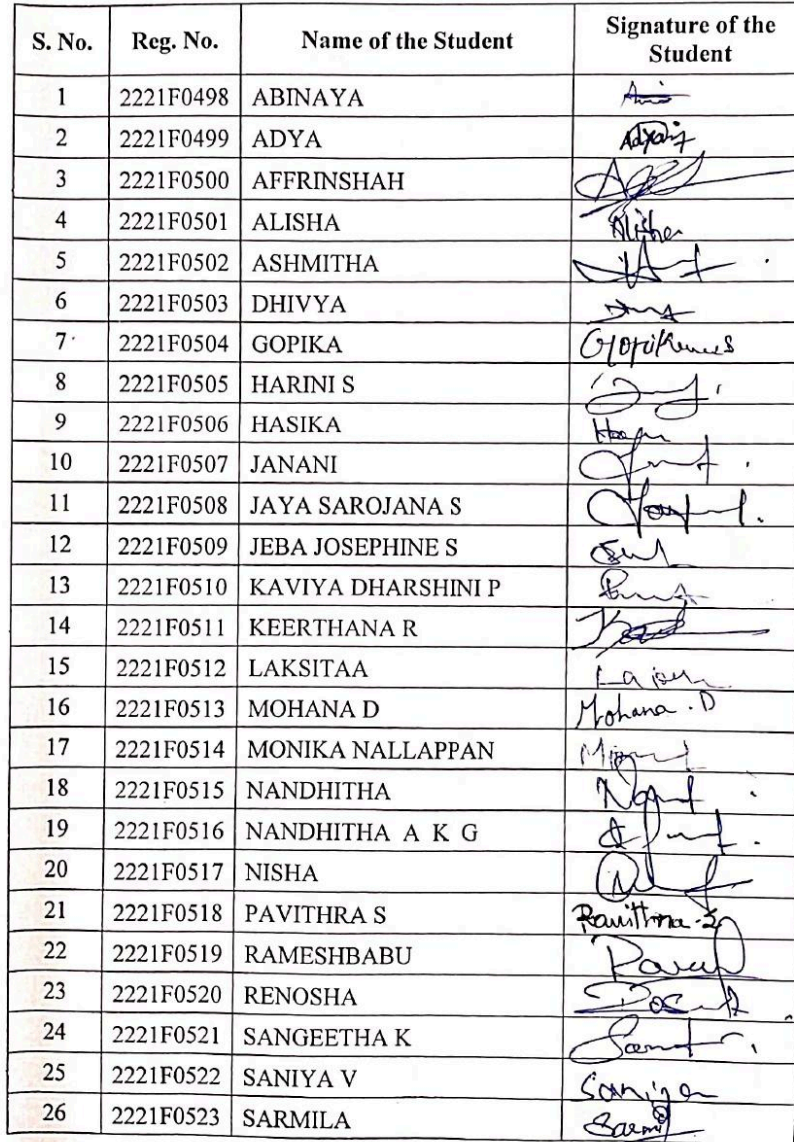 S. No. Reg. No. Name of the Student Signature of the Student
1 2221F0498 ABINAYA
2 2221F0499 ADYA
3 2221F0500 AFFRINSHAH
4 2221F0501 ALISHA Alisha
5 2221F0502 ASHMITHA
6 2221F0503 DHIVYA
7 2221F0504 GOPIKA
8 2221F0505 HARINI S
9 2221F0506 HASIKA
10 2221F0507 JANANI
11 2221F0508 JAYA SAROJANA S
12 2221F0509 JEBA JOSEPHINE S
13 2221F0510 KAVIYA DHARSHINI P
14 2221F0511 KEERTHANA R
15 2221F0512 LAKSITAA
16 2221F0513 MOHANA D Mohana . D
17 2221F0514 MONIKA NALLAPPAN
18 2221F0515 NANDHITHA
19 2221F0516 NANDHITHA A K G
20 2221F0517 NISHA
21 2221F0518 PAVITHRA S Pavithra - S
22 2221F0519 RAMESHBABU
23 2221F0520 RENOSHA
24 2221F0521 SANGEETHA K
25 2221F0522 SANIYA V Saniya
26 2221F0523 SARMILA